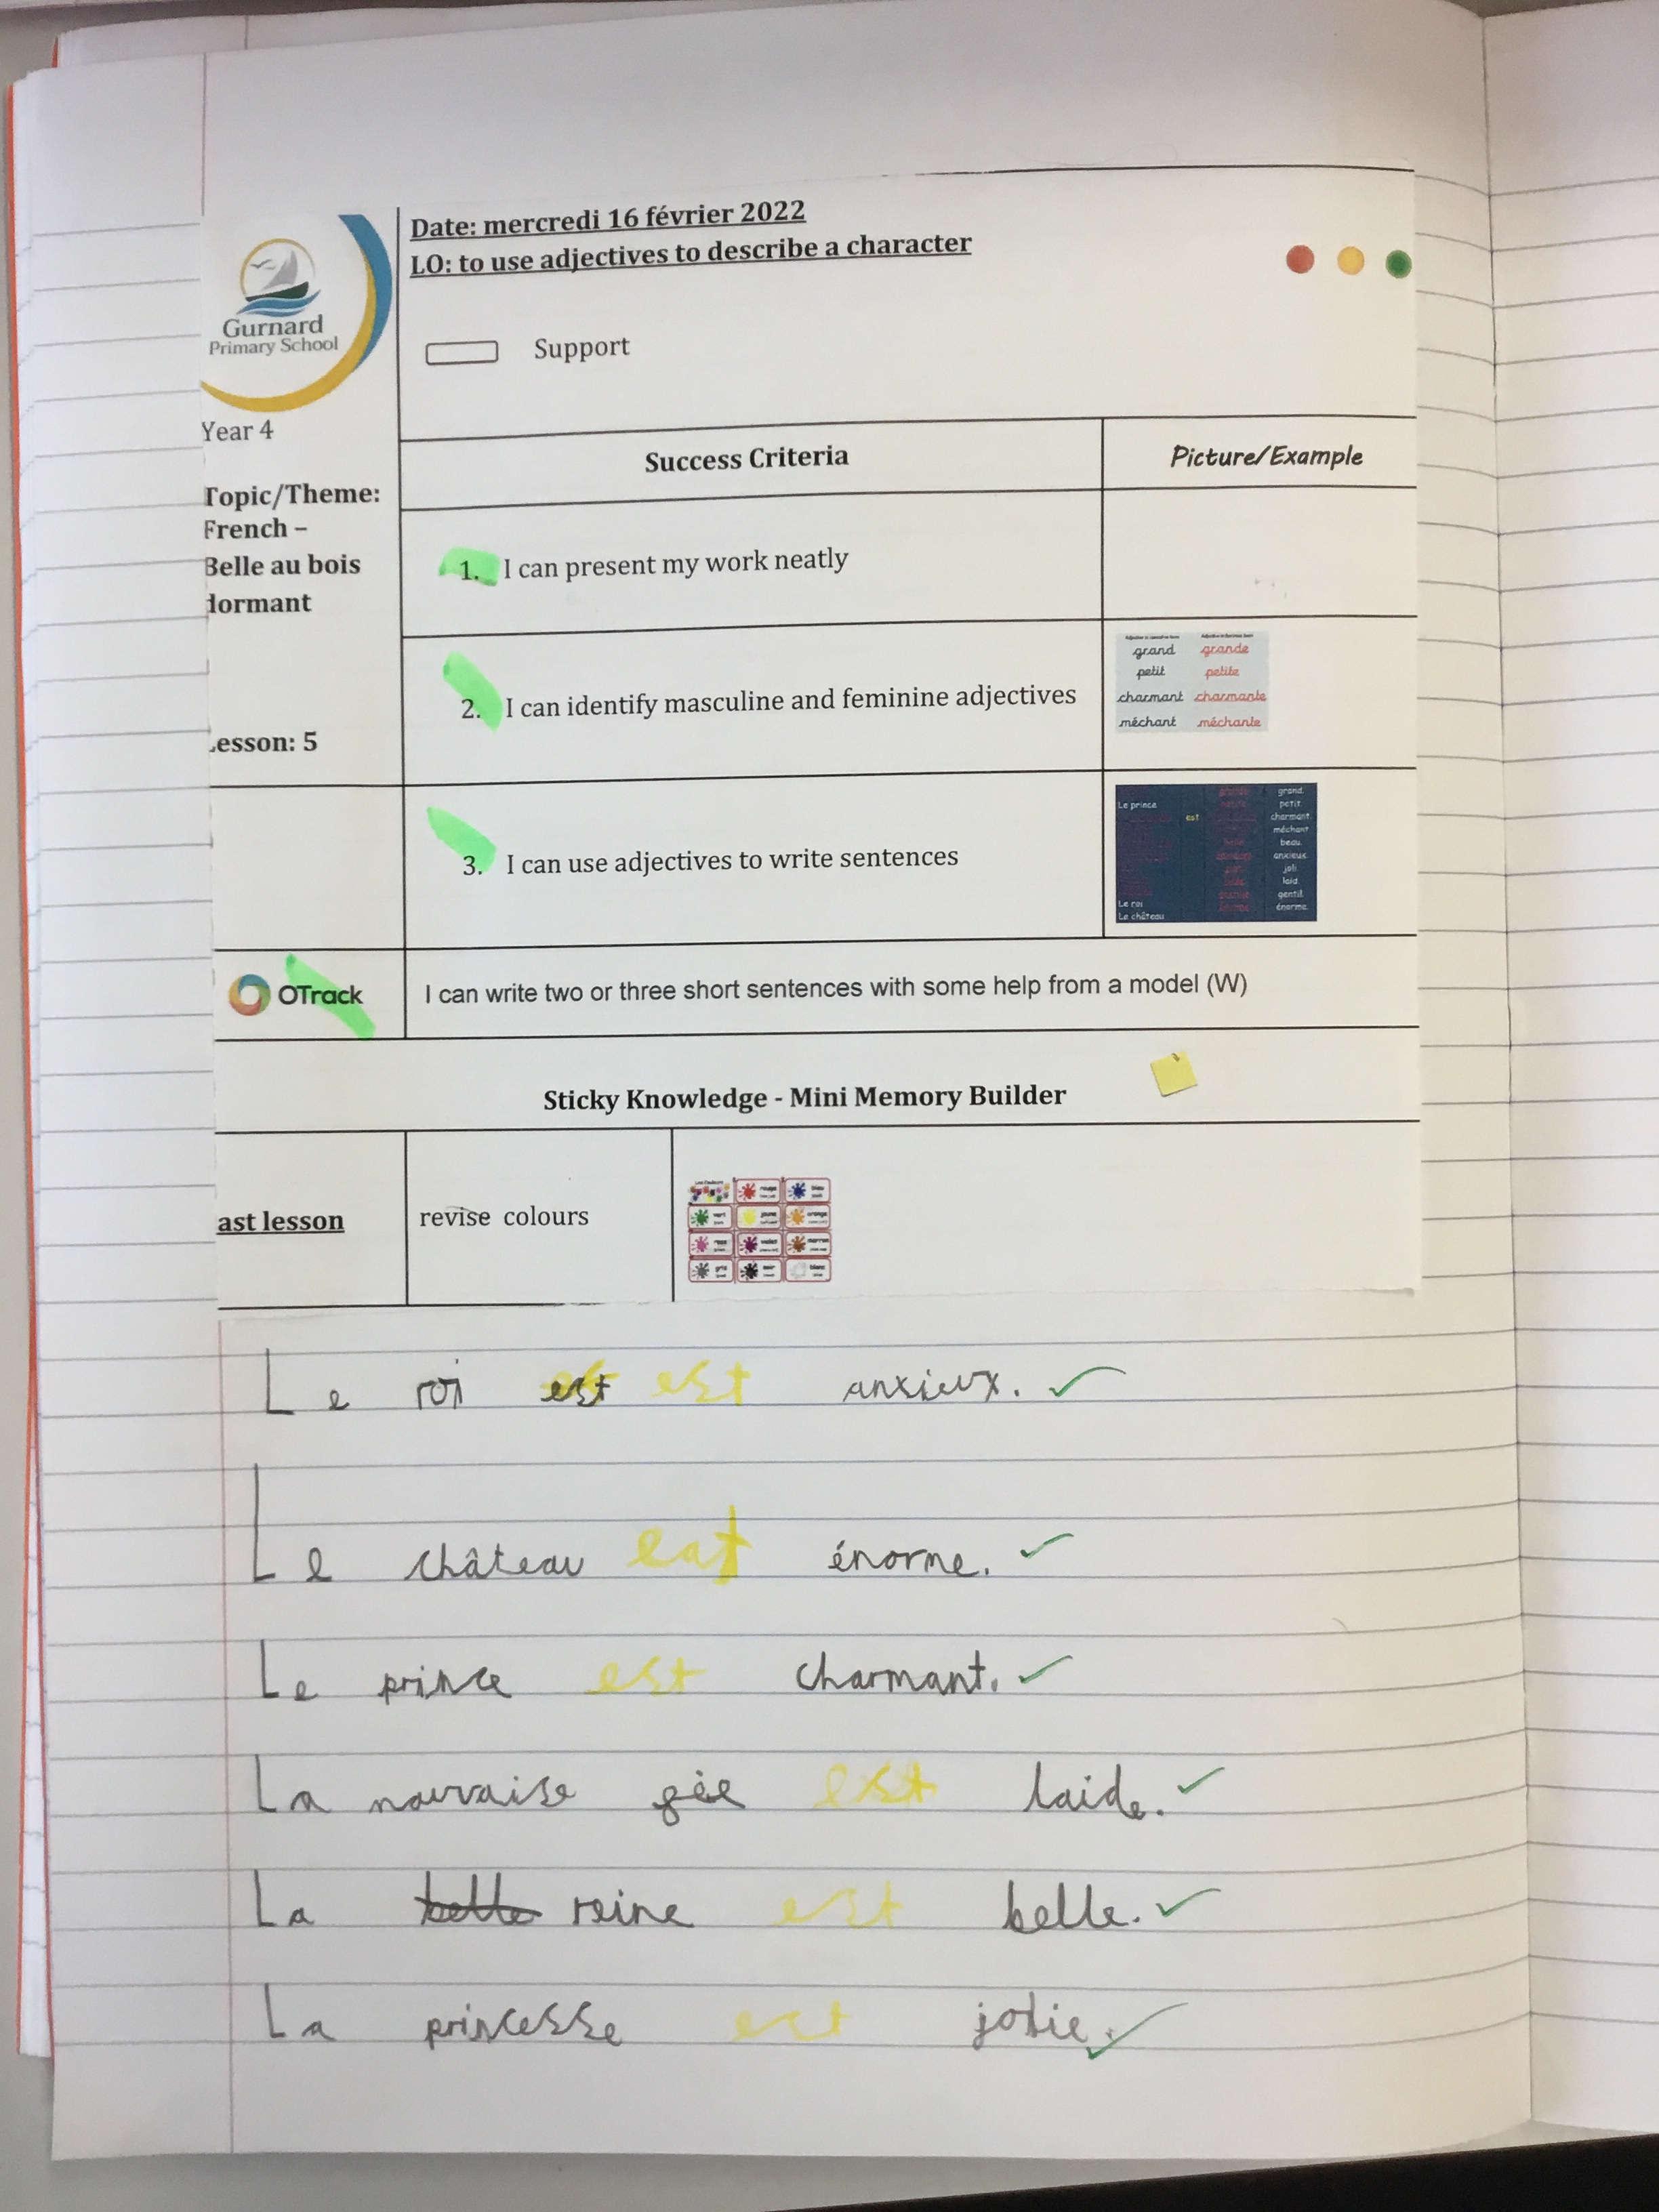 Date: mercredi 16 février 2022
LO: to use adjectives to describe a character
Gurnard
Primary School
Support
Year 4
Success Criteria
Picture/Example
Topic/Theme:
French –
Belle au bois
dormant
1. I can present my work neatly
2. I can identify masculine and feminine adjectives
grand grande
petit petite
charmant charmante
méchant méchante
Lesson: 5
3. I can use adjectives to write sentences
grand
Le prince petit
est charmant
méchant
beau
anxieux
joli
laid
Le roi gentil
Le château énorme
OTrack
I can write two or three short sentences with some help from a model (W)
Sticky Knowledge - Mini Memory Builder
ast lesson
revise colours
rouge bleu
vert jaune orange
rose violet marron
gris noir blanc
Le roi est est anxieux.
Le château est énorme.
Le prince est charmant.
La mauvaise fée est laide.
La belle reine est belle.
La princesse est jolie.